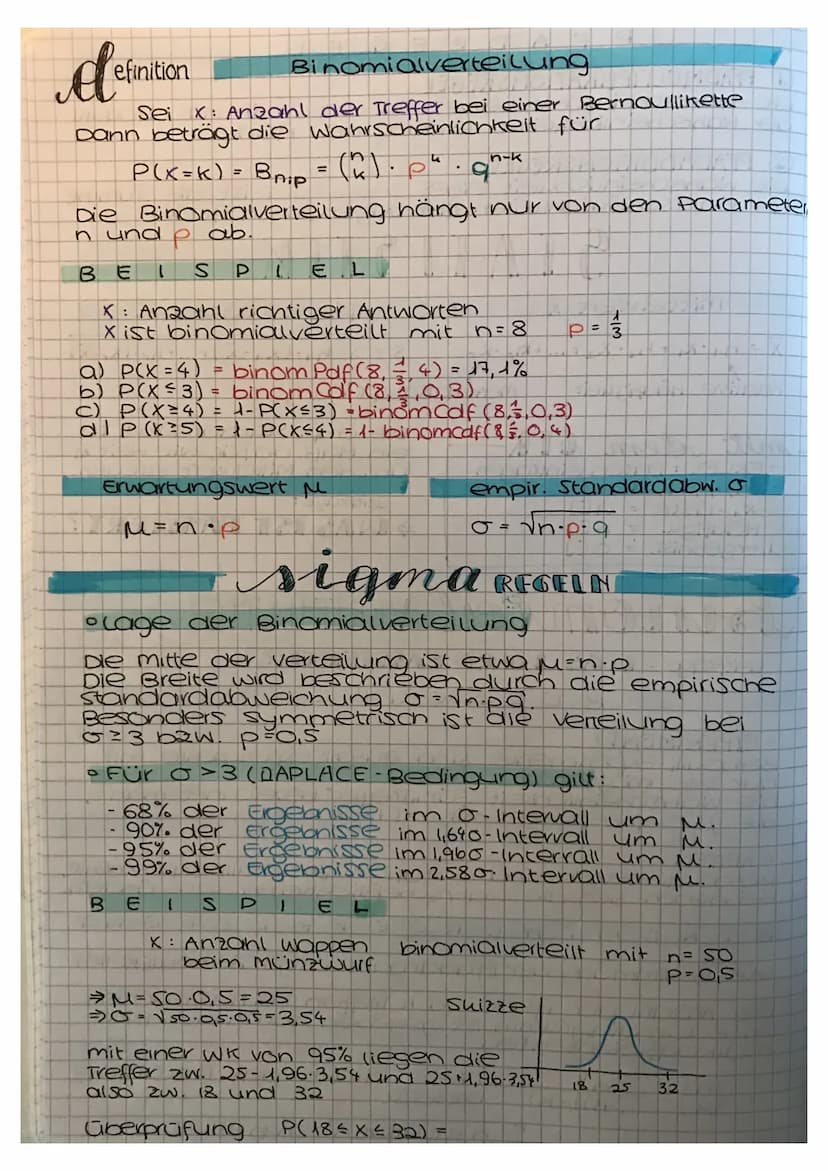 Definition Binomialverteilung
Sei X: Anzahl der Treffer bei einer Bernoullikette
Dann beträgt die Wahrscheinlichkeit für
P(X=k) = Bn;p = (n k) · p^k · q^n-k
Die Binomialverteilung hängt nur von den Parameter
n und p ab.
BEISPIEL
X: Anzahl richtiger Antworten
X ist binomialverteilt mit n=8 p = 1/3
a) P(X=4) = binomPdf(8, 1/3, 4) = 17,1%
b) P(X≤3) = binomCdf (8, 1/3, 0, 3)
c) P(X≥4) = 1-P(X≤3) = binomcdf (8, 1/3, 0, 3)
d) P(X≥5) = 1-P(X≤4) = 1- binomcdf(8, 1/3, 0, 4)
Erwartungswert μ empir. Standardabw. σ
μ = n · p σ = √n·p·q
sigma REGELN
Lage der Binomialverteilung
Die Mitte der Verteilung ist etwa μ=n·p
Die Breite wird beschrieben durch die empirische
Standardabweichung σ=√n·p·q.
Besonders symmetrisch ist die Verteilung bei
σ≥3 bzw. p=0,5
Für σ>3 (DAPLACE-Bedingung) gilt:
- 68% der Ergebnisse im σ-Intervall um μ.
- 90% der Ergebnisse im 1,64σ-Intervall um μ.
- 95% der Ergebnisse im 1,96σ-Interrall um μ.
- 99% der Ergebnisse im 2,58σ-Intervall um μ.
BEISPIEL
X: Anzahl Wappen binomialverteilt mit n=50
beim Münzwurf p=0,5
⇒ μ=50·0,5=25 Skizze
⇒ σ=√50·0,5·0,5=3,54
mit einer WK von 95% liegen die
Treffer zw. 25-1,96·3,54 und 25+1,96·3,54
also zw. 18 und 32
18 25 32
Überprüfung P(18≤X≤32) =